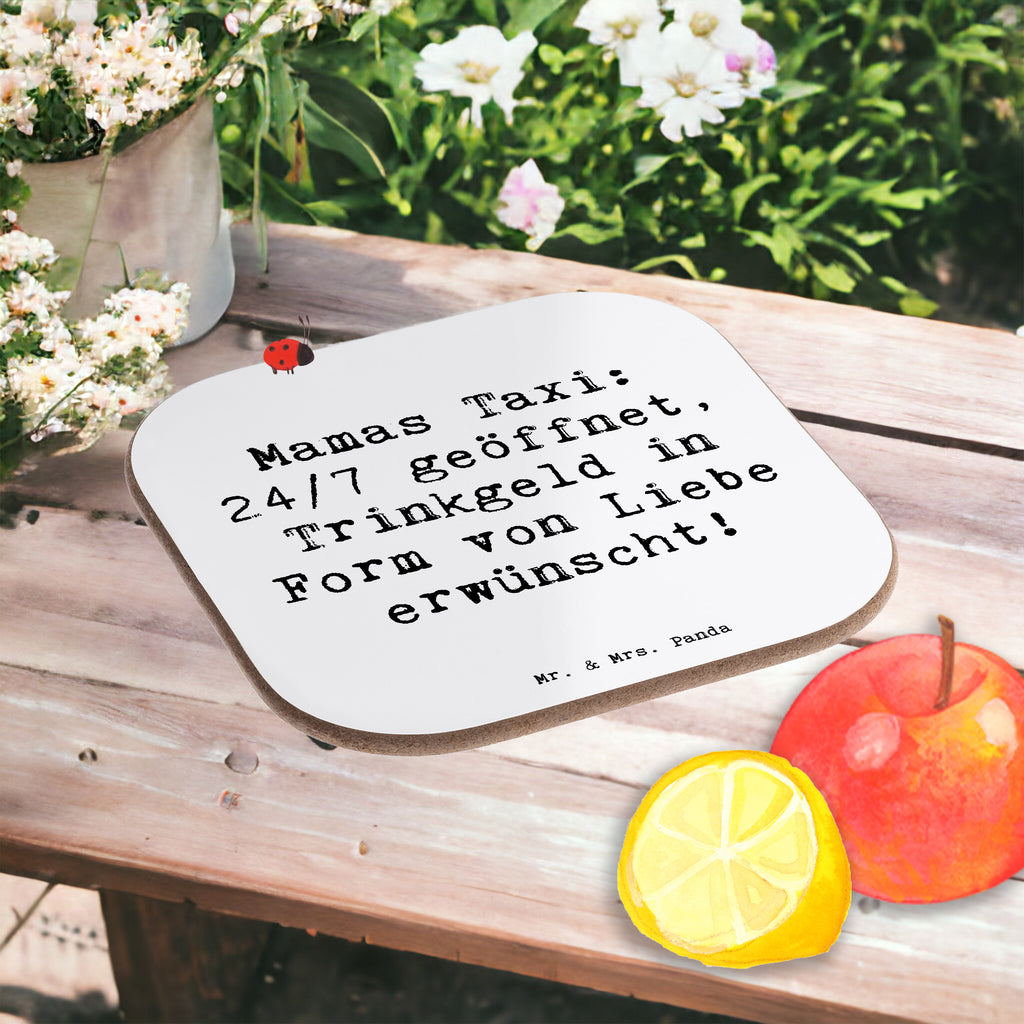 Mamas Taxi:
24/7 geöffnet,
Trinkgeld in
Form von Liebe
erwünscht!
Mr. & Mrs. Panda